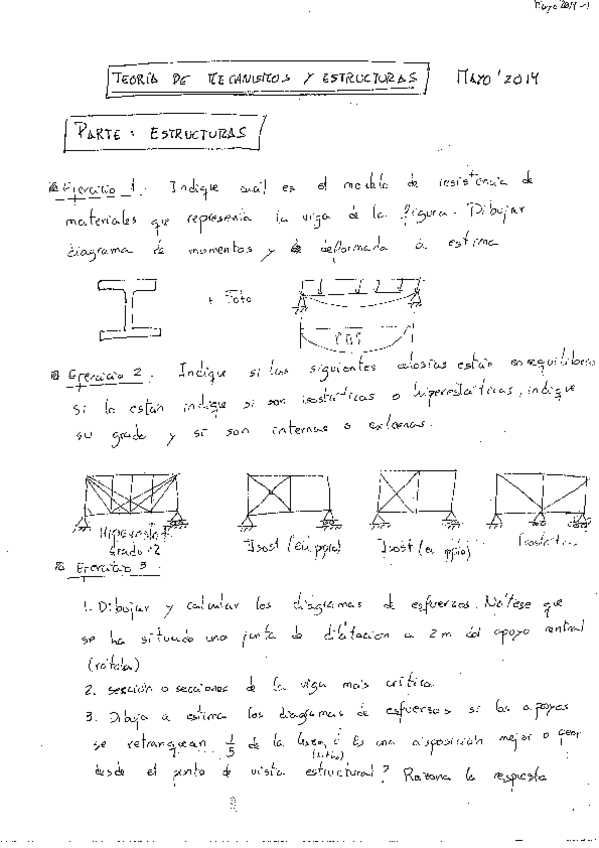 Mayo 2014-1
TEORÍA DE MECANISMOS Y ESTRUCTURAS MAYO'2014
PARTE: ESTRUCTURAS
Ejercicio 1. Indique cuál es el modelo de resistencia de
materiales que representa la viga de la figura. Dibujar
diagrama de momentos y deformada a estima
+ Foto
Ejercicio 2. Indique si las siguientes celosías están en equilibrio
si lo están indique si son isostáticas o hiperestáticas, indique
su grado y si son internas o externas.
Hiperest
Grado 2
Isost (en ppio)
Isost (en ppio)
Ejercicio 3
1. Dibujar y calcular los diagramas de esfuerzos. Nótese que
se ha situado una junta de dilatación a 2m del apoyo central
(rótula)
2. sección o secciones de la viga más crítica
3. Dibuja a estima los diagramas de esfuerzos si los apoyos
se retranquean 1/5 de la Es una disposición mejor o peor
desde el punto de vista estructural? Razona la respuesta